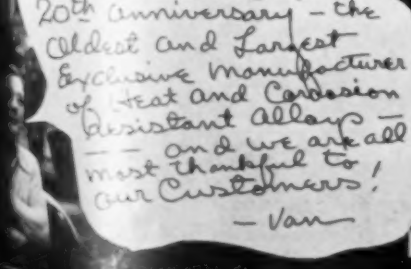 20th anniversary – the
Oldest and Largest
Exclusive Manufacturer
of Heat and Corrosion
Resistant Alloys –
— and we are all
most thankful to
our Customers!
– Van